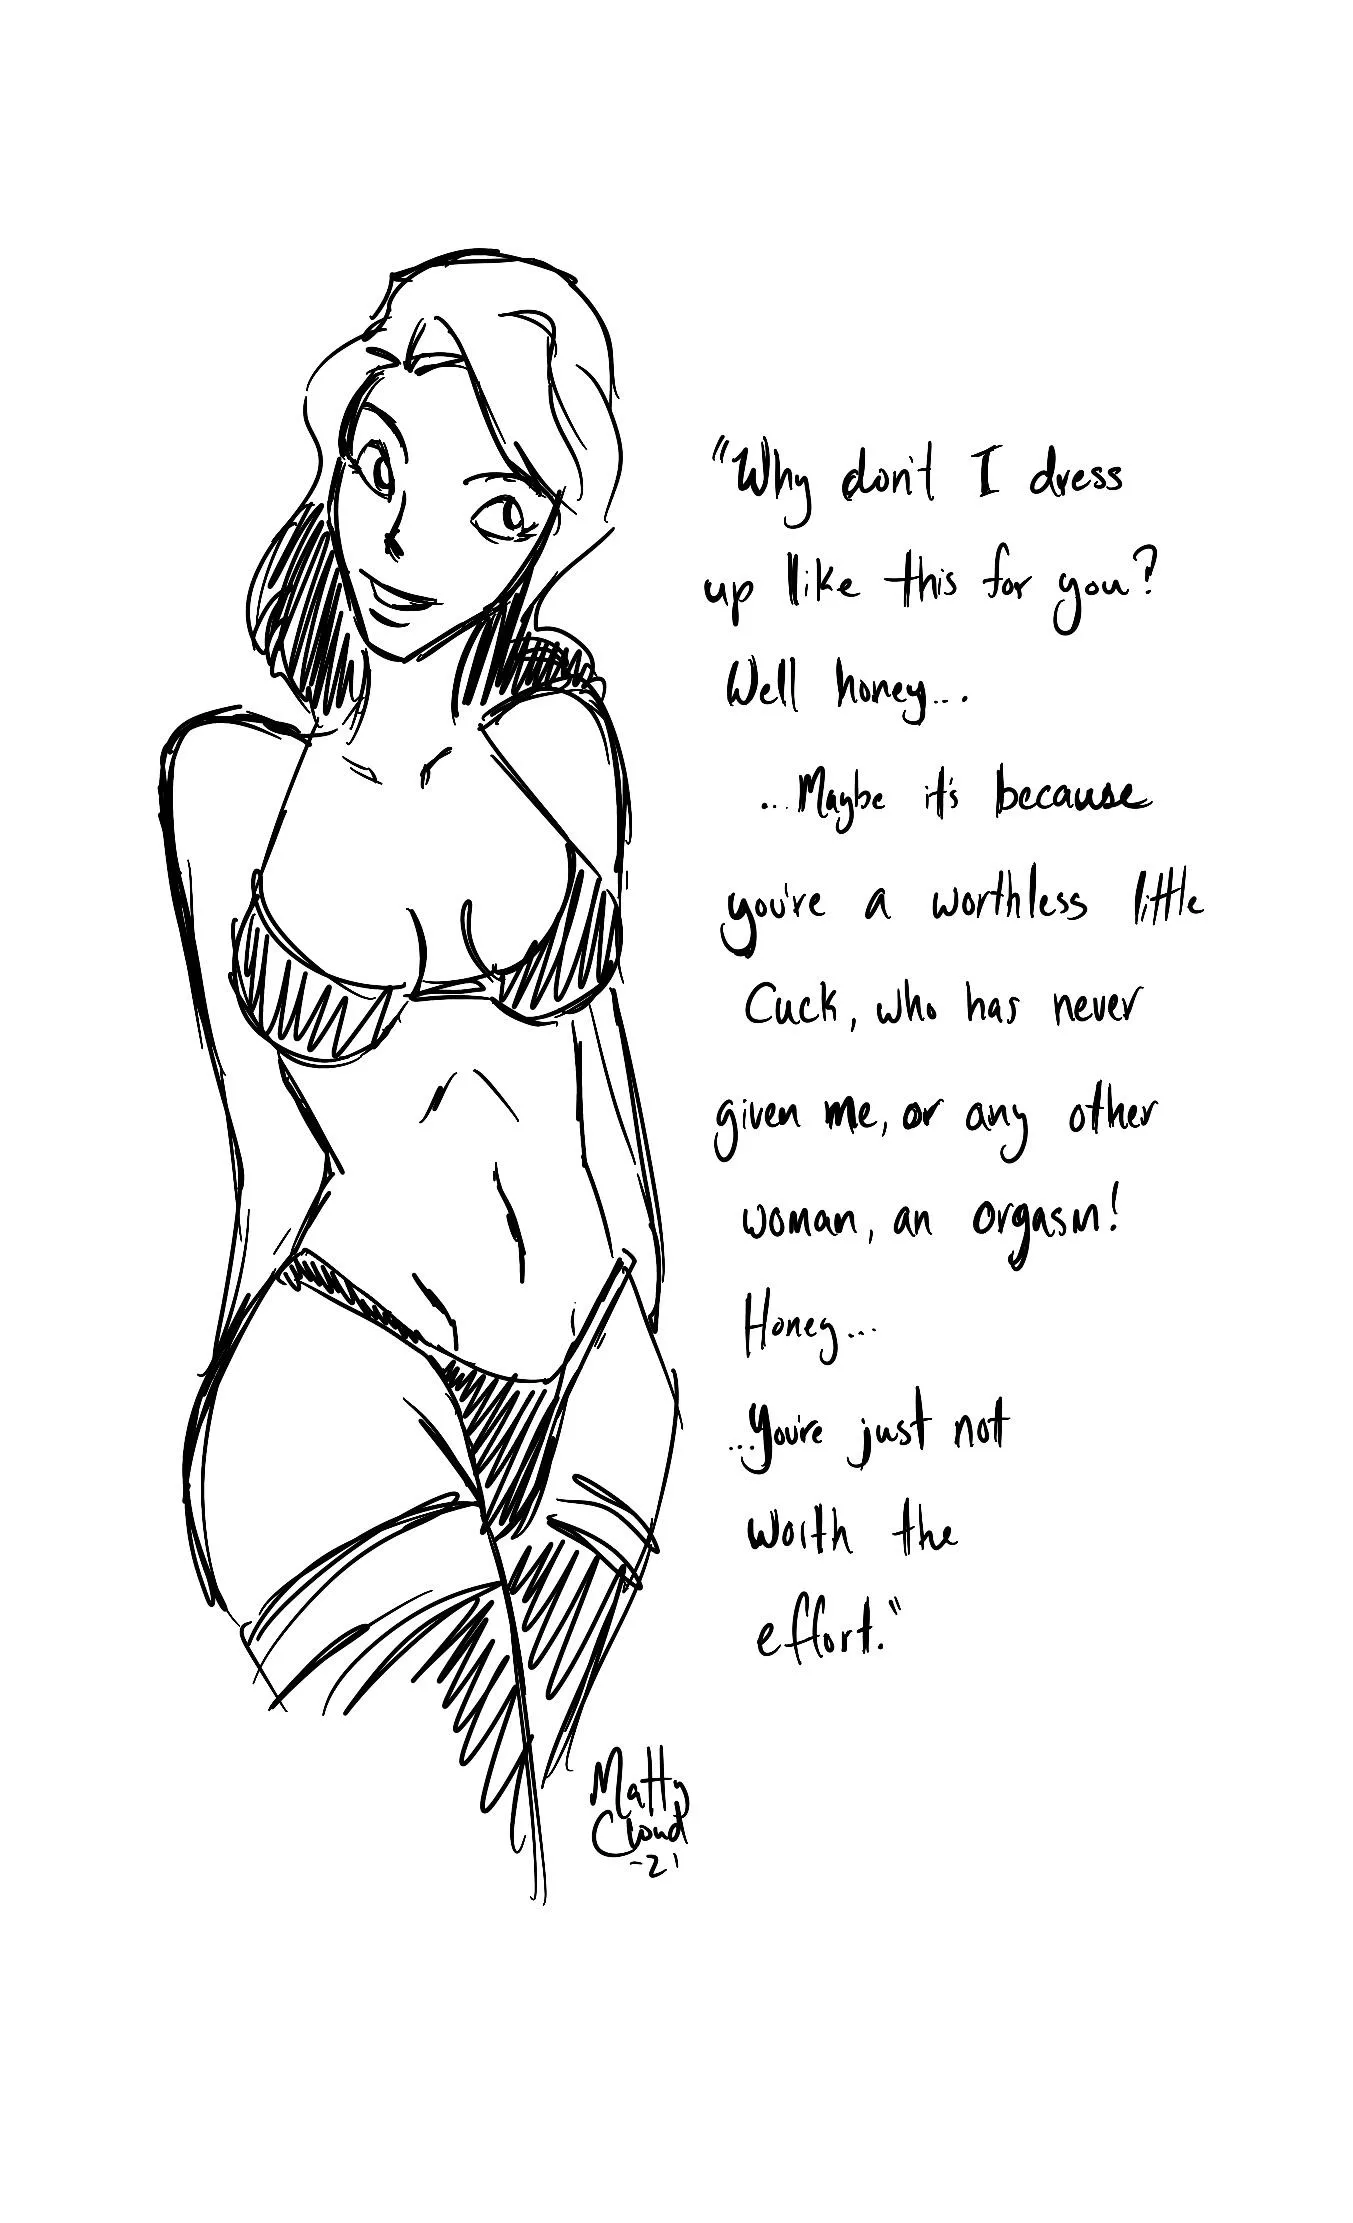 "Why don't I dress
up like this for you?
Well honey...
...Maybe it's because
you're a worthless little
Cuck, who has never
given me, or any other
woman, an orgasm!
Honey...
...You're just not
worth the
effort."
Matty
Cloud
-21